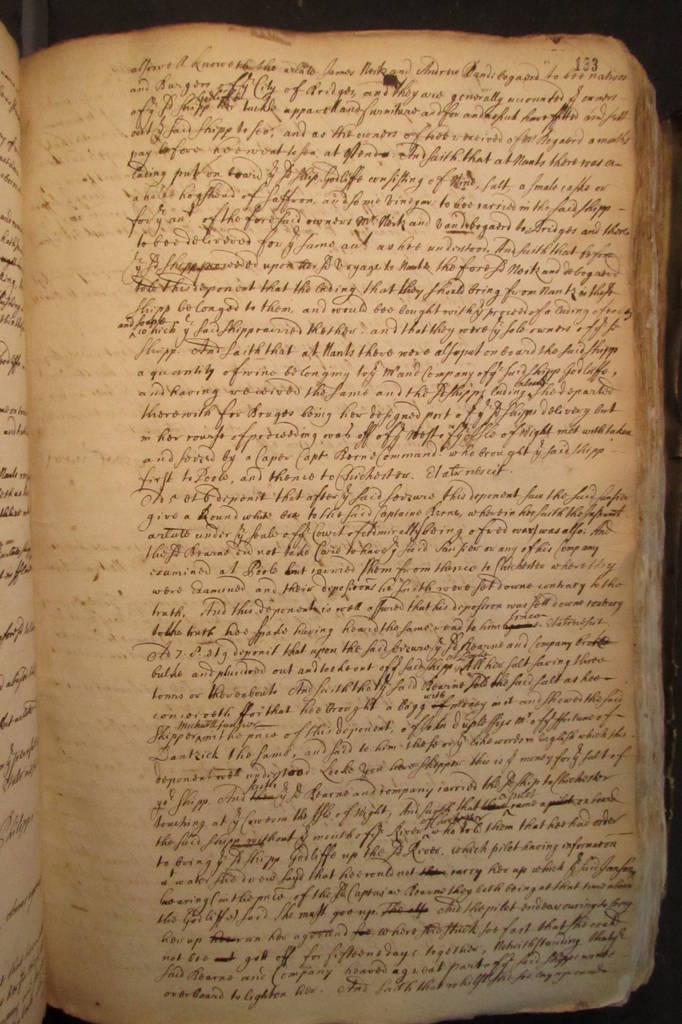 133
alsoe hee knoweth the arlate James Neik and Andrew Vandebogaerd to bee natives
and Burgers of ye City of Bridges, and they are generally accounted ye owners
of ye sd shipp her tackle apparell and furniture and
out ye said shipp to sea, and as the owners of her hee received of Mr Bogaerd a months
pay before hee went to sea at Ostend. And saith that at Nants there was a
lading put on board ye sd ship Godliffe consisting of Wine, salt, a small caske or
a halfe hogshead of Saffron, and some Vinegar to bee carried in the said shipp
for ye acct of the foresaid owners Mr Neik and Vandebogaerd to Bridges and there
to bee delivered for ye same acct as hee understood. And saith that before
ye sd shipp proceeded upon her sd Voyage to Nants the foresd Neik and Bogaerd
told this deponent that the lading that they should bring from Nants in the sd
shipp belonged to them, and would bee bought with ye proceed of a lading of
and which ye said shipp carried thether, and that they were ye sole owners of ye sd
shipp. And saith that at Nants there were also put on board the said shipp
a quantity of wine belonging to ye Mr and Company of ye said shipp Godliffe,
and having received the same and the sd shipps lading, shee departed
therewith for Bruges being her designed port of ye sd shipps delivery but
in her course of proceeding was off of ye West of ye Isle of Wight met with taken
and seized by a Caper Capt Kerne Commander who brought ye said shipp
first to Poole, and thence to Chichester. Et aliter nescit.
To 5 et 6 deponit that after ye said seizure this deponent saw the said
give a Round white box to the said Captaine Kerne, wherein hee saith the
arlate under ye seale of ye Court of Admiralty being of red wax was also. And
the sd Kearne did not take Care to have ye said skipper or any of his Company
examined at Poole but carried them from thence to Chichester where they
were examined and their depositions hee saith were set downe contrary to the
truth. And this deponent is well assured that his deposition was sett downe contrary
to the truth hee having heard the same read to him
To 7. 8. et 9 deponit that upon the said seizure ye sd Kearne and Company
bulke and plundered out and tooke out of ye said shipp All her salt saving three
tonns or thereabouts. And saith that ye said Kearne sold the said salt as hee
conceiveth for that hee brought a bagg with money and shewed the said
Skipper in the presence of this deponent, and of
Dantzick the same, and said to him these or ye like words in English which this
deponent well understood. Looke you heere skipper this is ye money for ye salt of
yor shipp. And saith ye sd Kearne and company carried the sd ship to Chichester
touching at ye Cowes in the Isle of Wight, And saith that there came a pilot on board
the said shipp without ye mouth of ye River of Chichester who told them that hee had order
to bring ye sd shipp Godliffe up the sd River, which pilot having information
water shee drew sayd that hee could not carry her up which ye said
hearing (in the presence of the sd Captaine Kearne they both being at that time aboard
the Godliffe) said she must goe up. And the pilot endeavouring to bring
her up ran her aground where shee stuck soe fast that shee could
not bee got off for fifteene dayes together, Notwithstanding that ye
said Kearne and Company heaved a great part of ye said shipps
overboard to lighten her. And saith that whilst shee soe